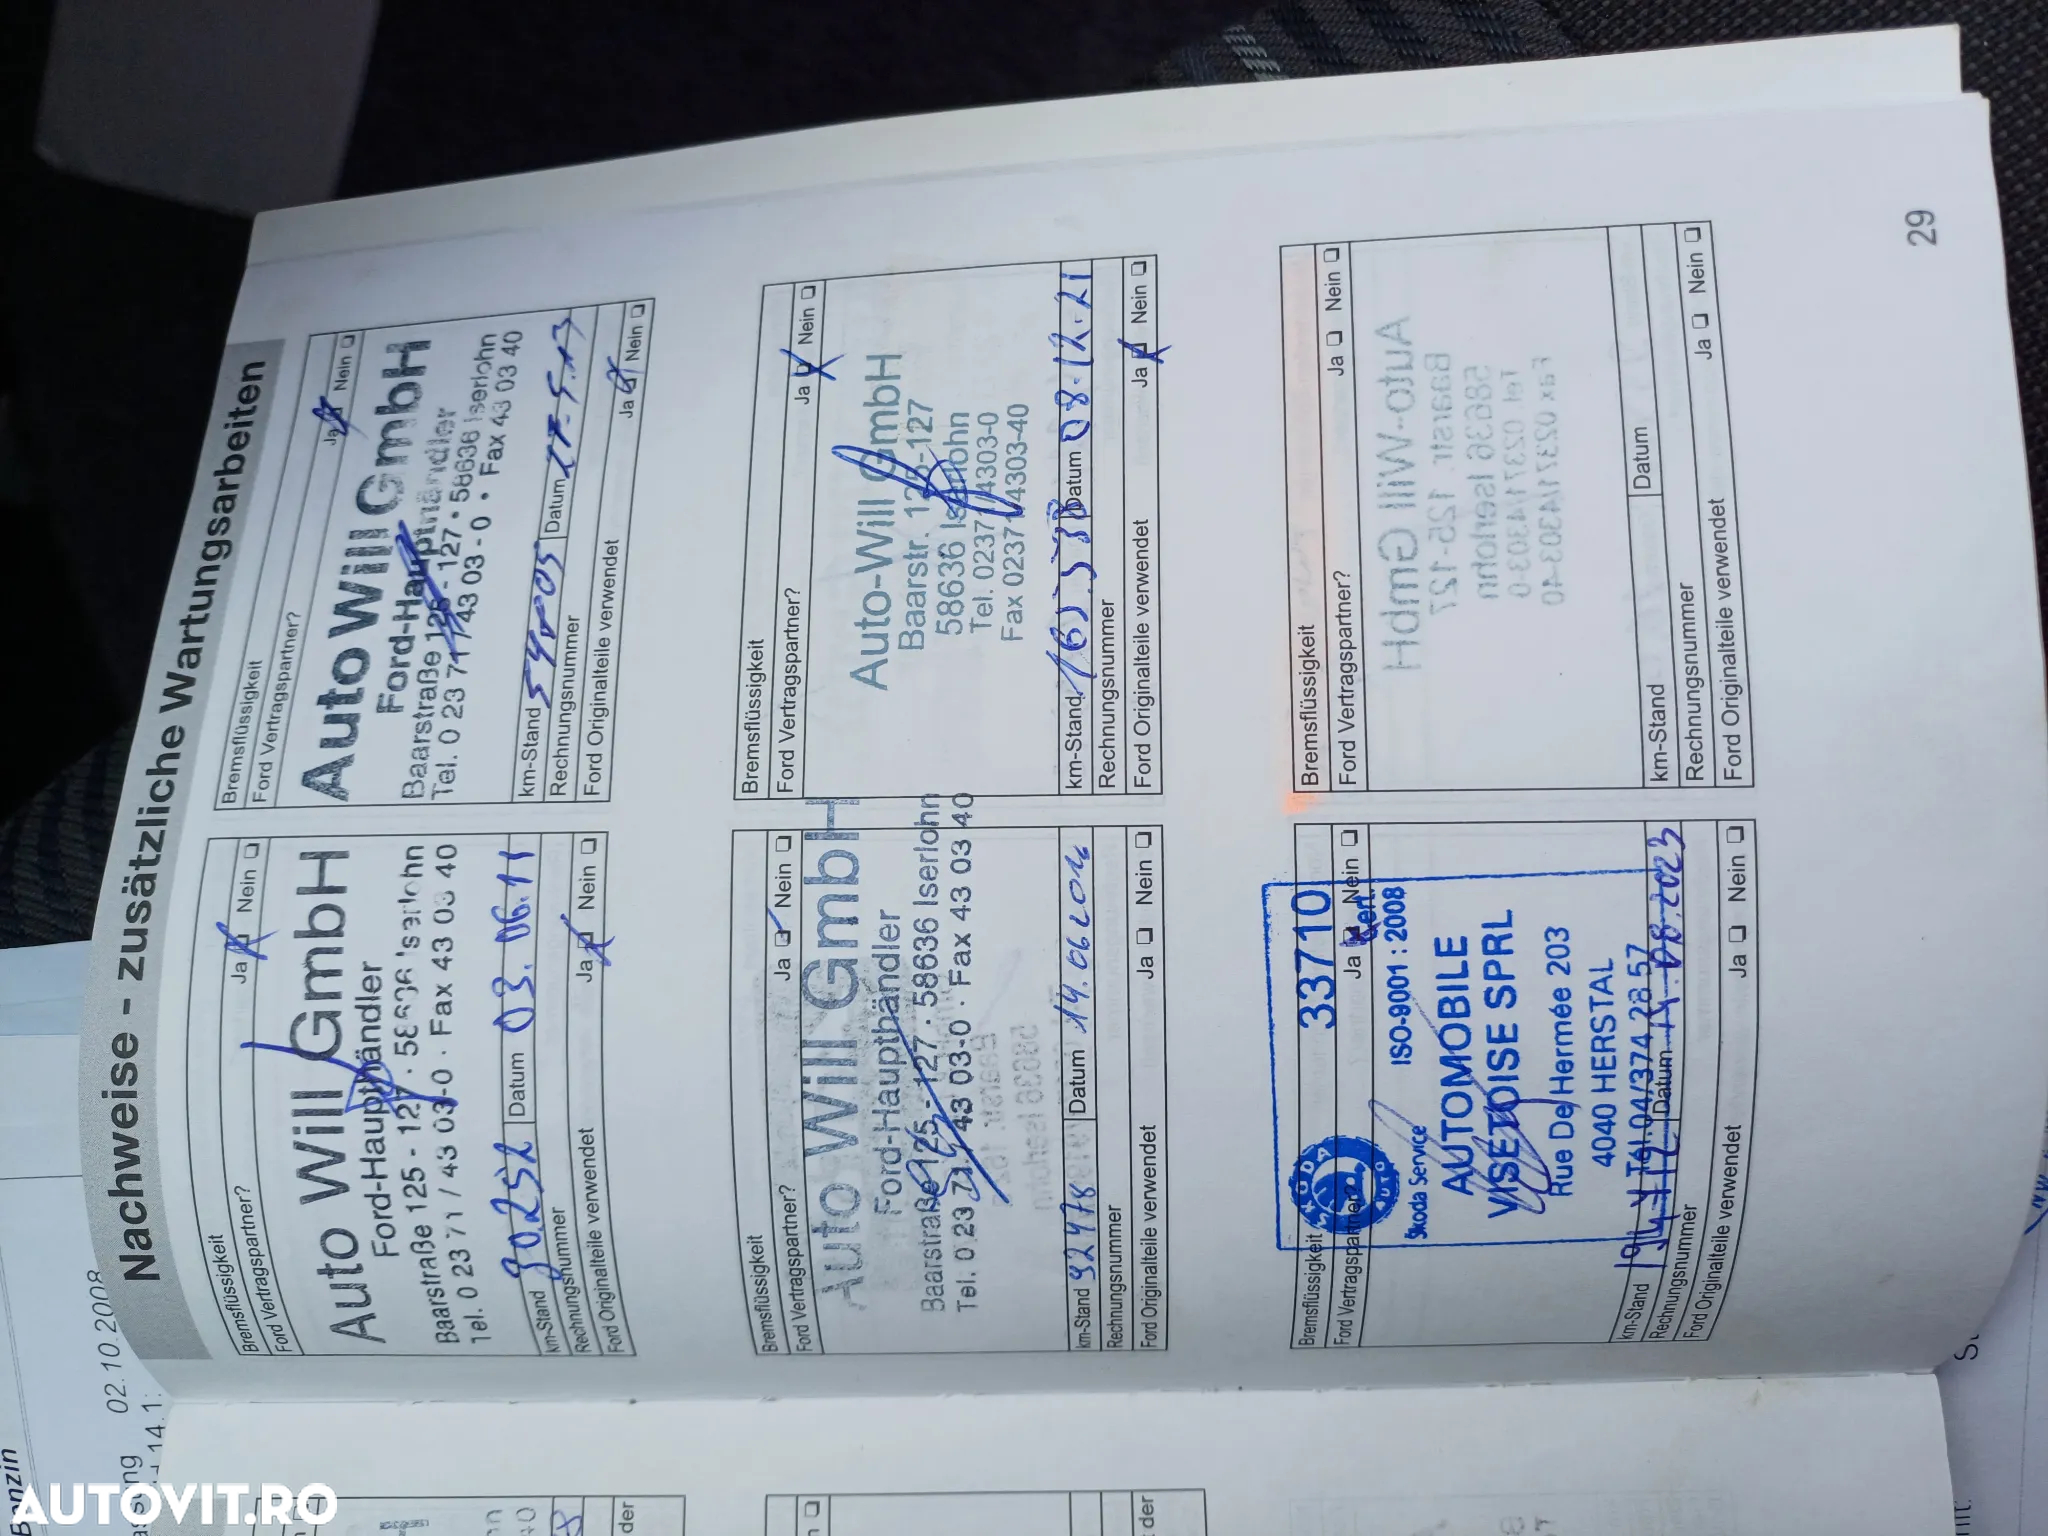 Nachweise - zusätzliche Wartungsarbeiten
Bremsflüssigkeit
Ford Vertragspartner? Ja Nein
Auto Will GmbH
Ford-Haupthändler
Baarstraße 125 - 127 · 58636 Iserlohn
Tel. 0 23 71 / 43 03-0 · Fax 43 03 40
km-Stand 30.252 Datum 03.06.11
Rechnungsnummer
Ford Originalteile verwendet Ja Nein
Bremsflüssigkeit
Ford Vertragspartner? Ja Nein
Auto Will GmbH
Ford-Haupthändler
Baarstraße 125 - 127 • 58636 Iserlohn
Tel. 0 23 71 / 43 03 - 0 • Fax 43 03 40
km-Stand Datum 27.5.13
Rechnungsnummer
Ford Originalteile verwendet Ja Nein
Bremsflüssigkeit
Ford Vertragspartner? Ja Nein
Auto Will GmbH
Ford-Haupthändler
Baarstraße 125 - 127 · 58636 Iserlohn
Tel. 0 23 71 / 43 03-0 · Fax 43 03 40
km-Stand 92478 Datum 14.06.2016
Rechnungsnummer
Ford Originalteile verwendet Ja Nein
Bremsflüssigkeit
Ford Vertragspartner? Ja Nein
Auto-Will GmbH
Baarstr. 125-127
58636 Iserlohn
Tel. 02371/4303-0
Fax 02371/4303-40
km-Stand Datum 08.12.21
Rechnungsnummer
Ford Originalteile verwendet Ja Nein
Bremsflüssigkeit 33710
Ford Vertragspartner? Ja Nein
Skoda Service ISO-9001 : 2008
AUTOMOBILE
VISETOISE SPRL
Rue De Hermée 203
4040 HERSTAL
Tel.04/374 28 57
km-Stand Datum 08.2023
Rechnungsnummer
Ford Originalteile verwendet Ja Nein
Bremsflüssigkeit
Ford Vertragspartner? Ja Nein
Auto-Will GmbH
Baarstr. 125-127
58636 Iserlohn
Tel. 02371/4303-0
Fax 02371/4303-40
km-Stand Datum
Rechnungsnummer
Ford Originalteile verwendet Ja Nein
29
02.10.2008
Benzin
der
der
AUTOVIT.RO